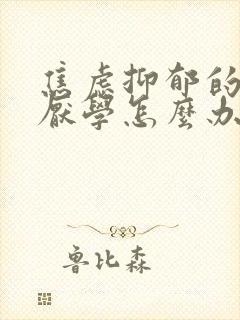 焦虑抑郁的
厌學怎麼办
鲁比森